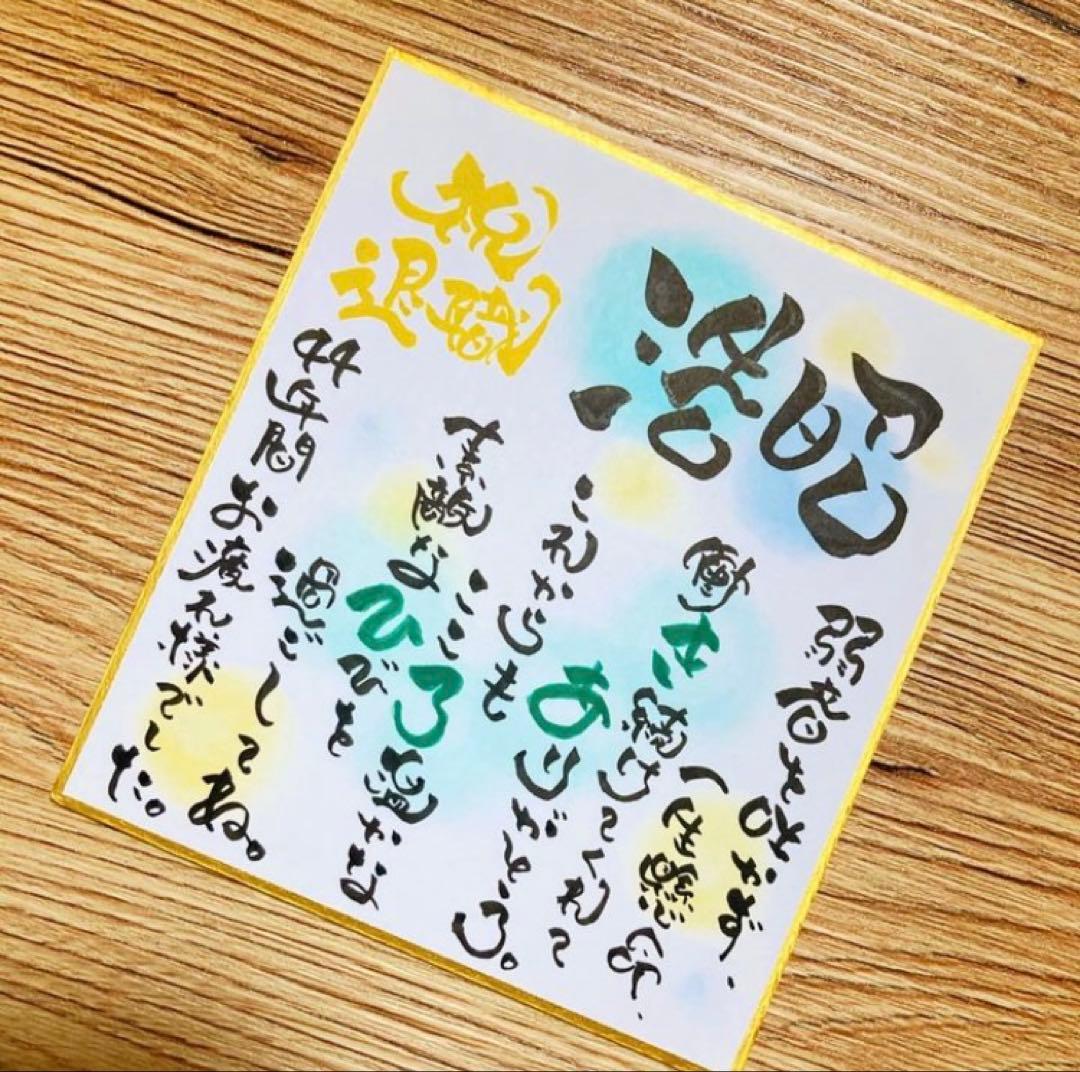 浩昭
弱音も吐かず、
一生懸命、
働き続けてくれて
ありがとう。
これからも
こころ温かな
素敵なひびを
過ごしてね。
祝
退職
44年間
お疲れ様でした。